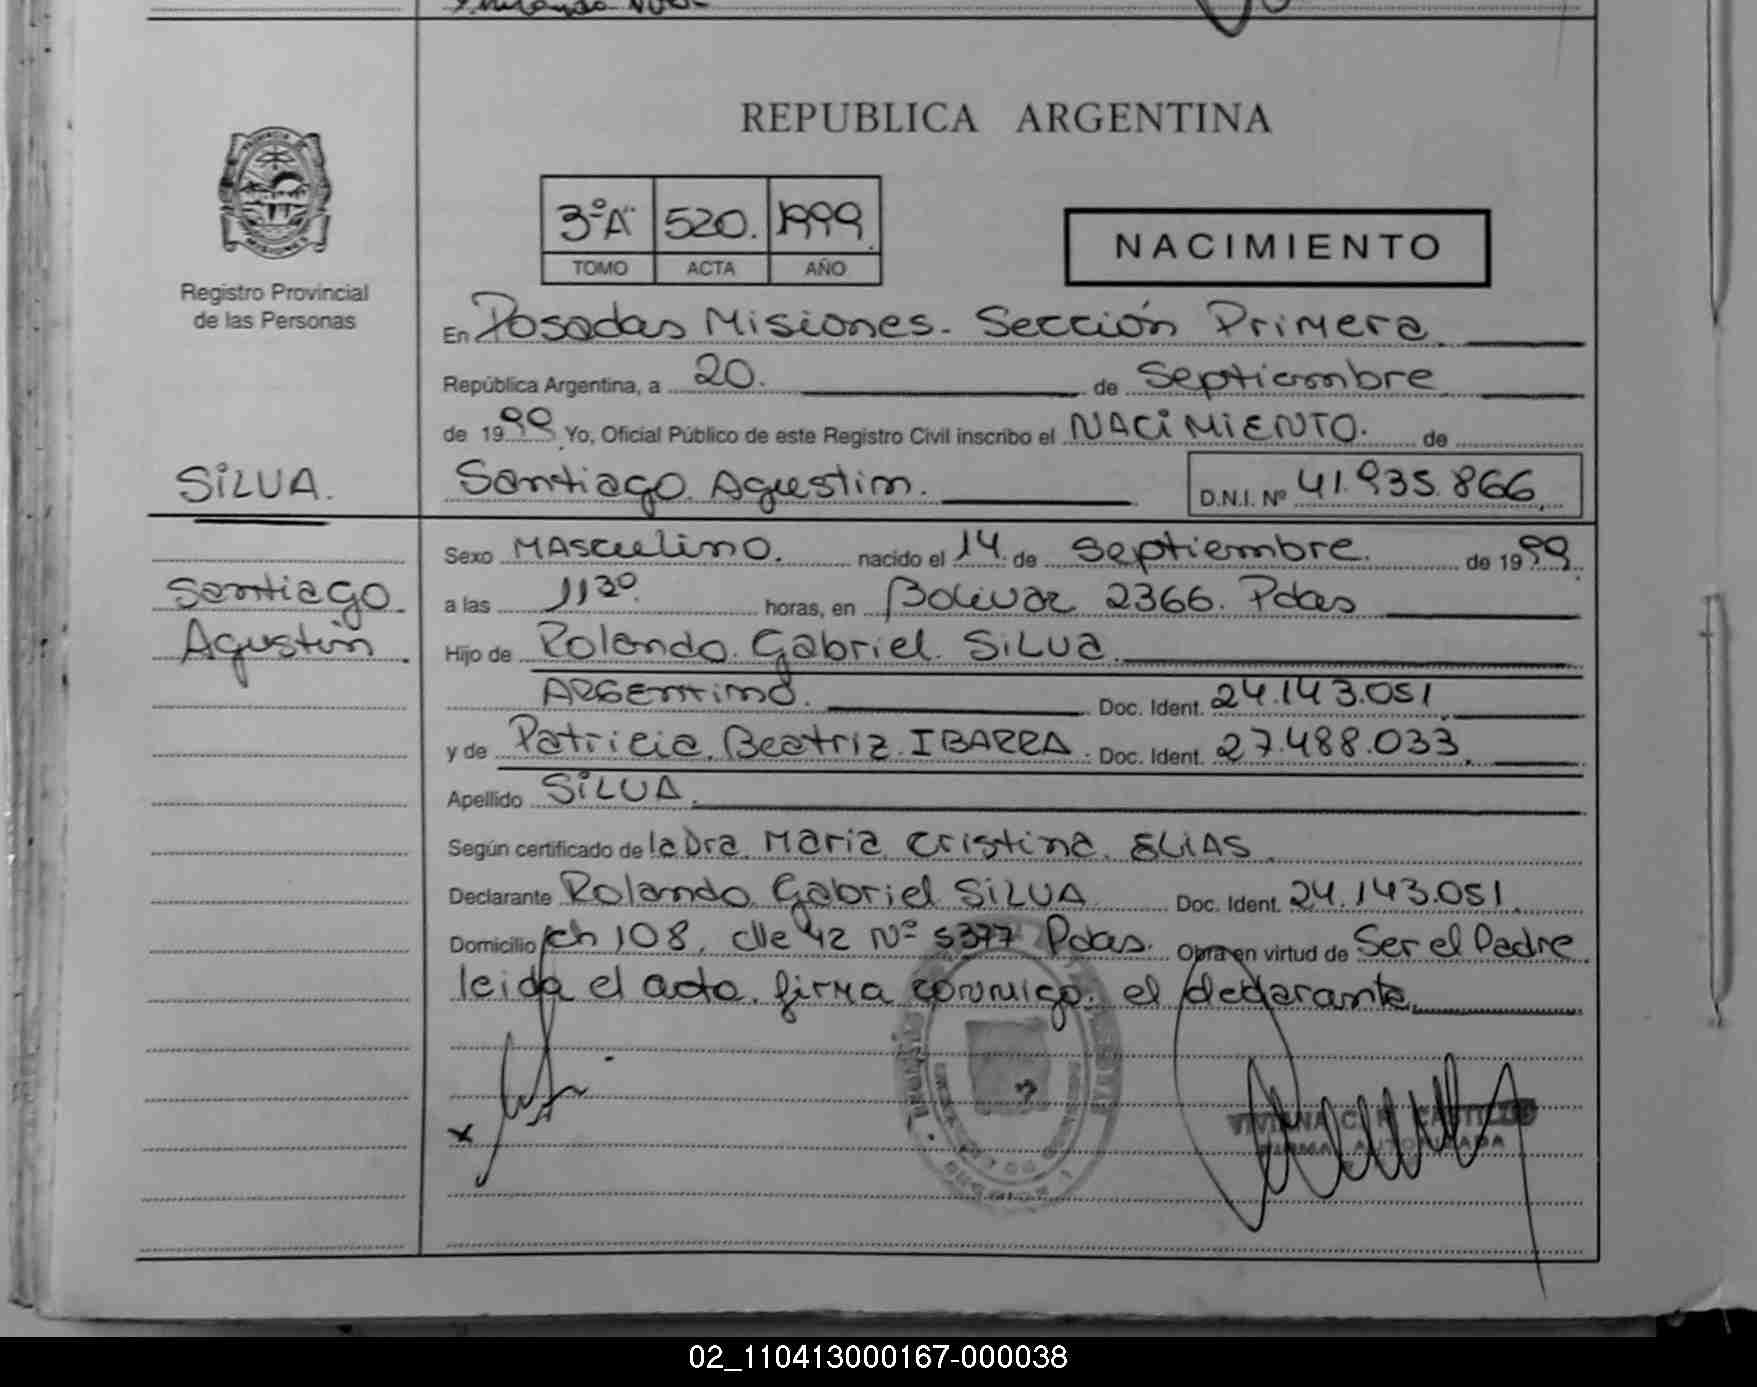 REPUBLICA ARGENTINA
3º"A" 520. 1999.
TOMO ACTA AÑO
NACIMIENTO
Registro Provincial
de las Personas
En Posadas Misiones. Sección Primera
República Argentina, a 20. de Septiembre
de 1999 Yo, Oficial Público de este Registro Civil inscribo el NACIMIENTO. de
SILVA.
Santiago Agustin. D.N.I. Nº 41.935.866
Sexo MAsculino. nacido el 14 de Septiembre. de 1999.
Santiago
Agustin
a las 11³⁰ horas, en Bolivar 2366. Pdas
Hijo de Rolando Gabriel SILVA
ARGentino. Doc. Ident. 24.143.051
y de Patricia Beatriz IBARRA. Doc. Ident. 27.488.033
Apellido SILVA
Según certificado de la Dra Maria Cristina ELIAS
Declarante Rolando Gabriel SILVA Doc. Ident. 24.143.051
Domicilio ch 108, clle 42 Nº 5377 Pdas. Obra en virtud de Ser el Padre
leida el acta firma conmigo el declarante
VIVIANA C. CASTILLO
FIRMA AUTORIZADA
02_110413000167-000038